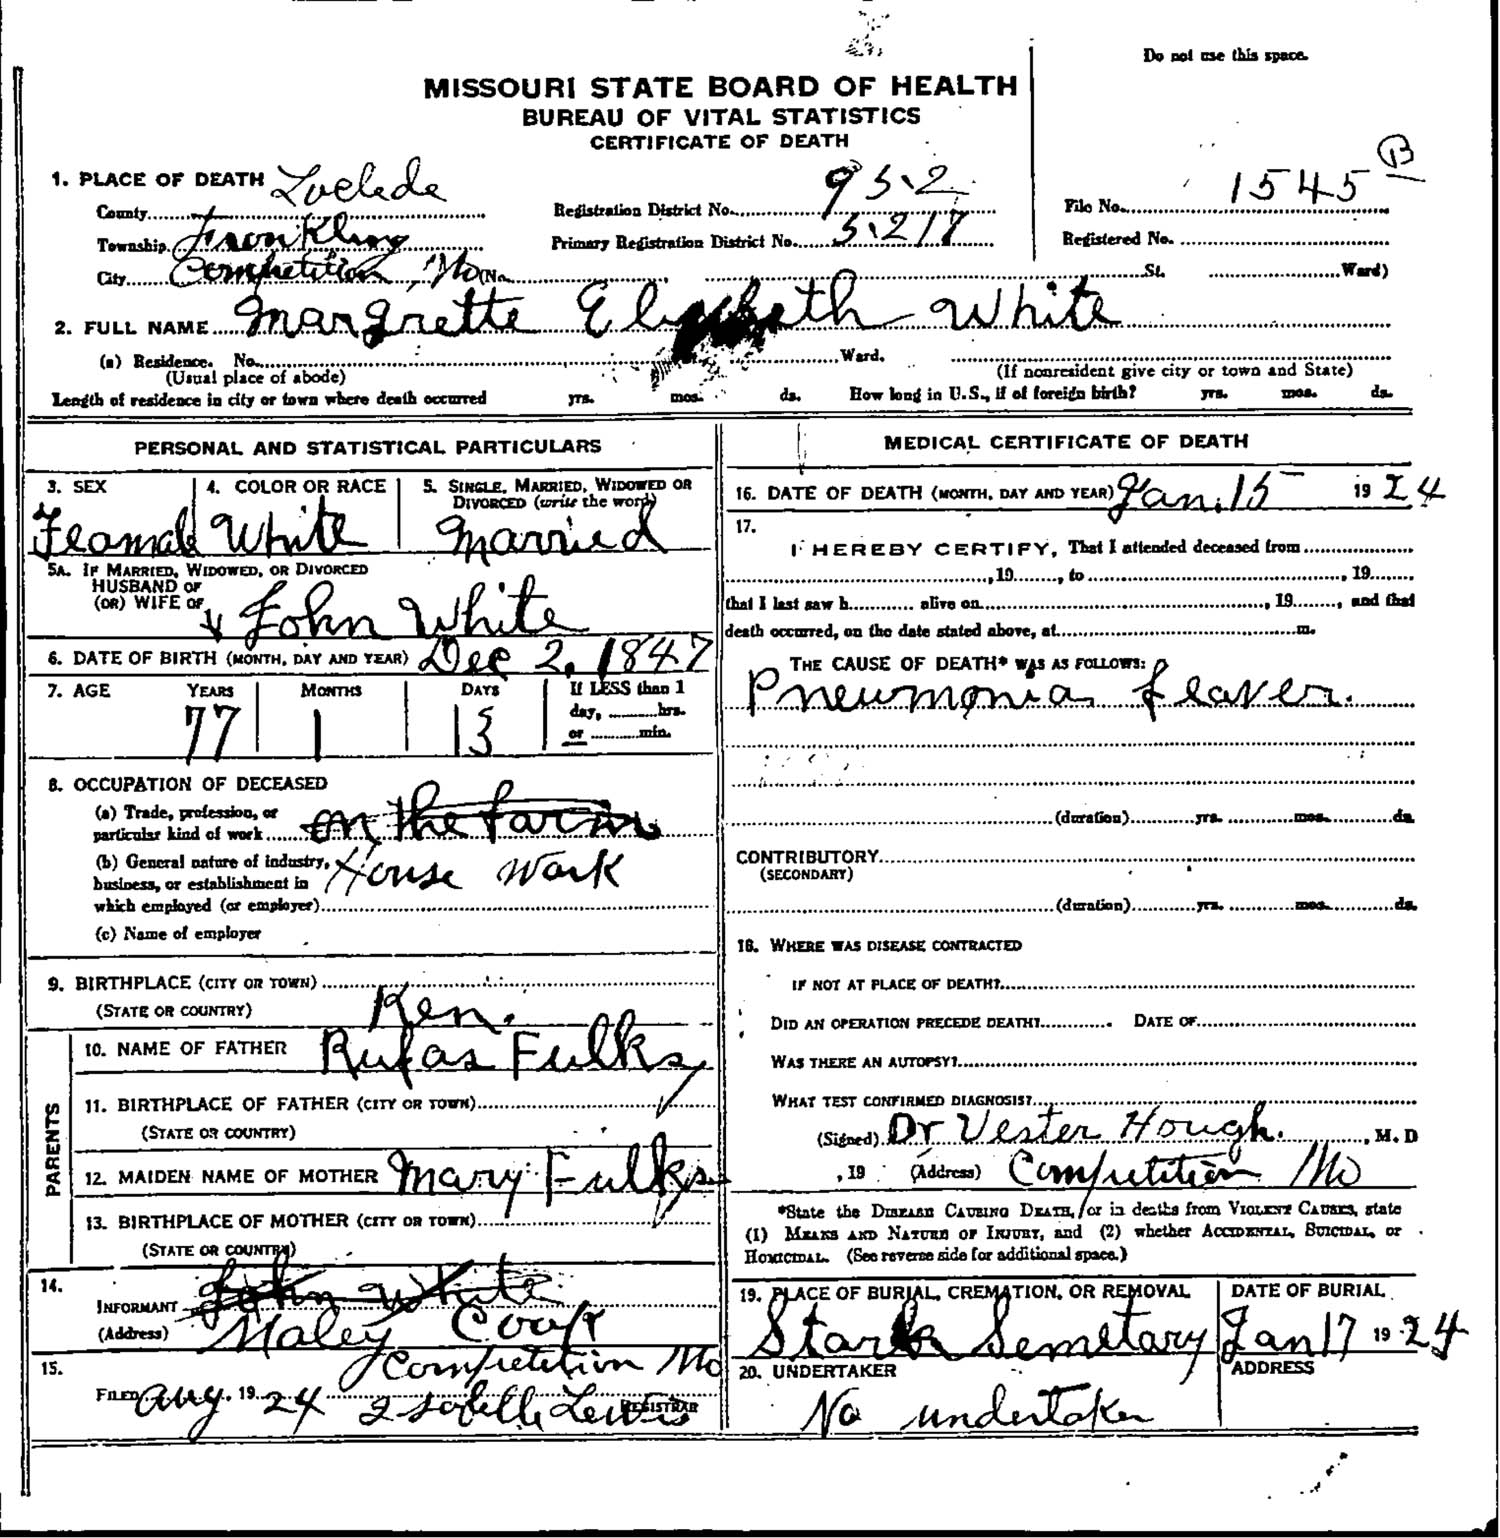 Do not use this space.
MISSOURI STATE BOARD OF HEALTH
BUREAU OF VITAL STATISTICS
CERTIFICATE OF DEATH
1. PLACE OF DEATH Loclede
County
Township Fronkling
City Competition, Mo (No. St. Ward)
Registration District No. 952
Primary Registration District No. 5217
File No. 1545 B
Registered No.
2. FULL NAME Margrette Elizebeth White
(a) Residence. No. Ward.
(Usual place of abode) (If nonresident give city or town and State)
Length of residence in city or town where death occurred yrs. mos. ds. How long in U.S., if of foreign birth? yrs. mos. ds.
PERSONAL AND STATISTICAL PARTICULARS
3. SEX 4. COLOR OR RACE 5. SINGLE, MARRIED, WIDOWED OR
DIVORCED (write the word)
Feamale White Married
5A. IF MARRIED, WIDOWED, OR DIVORCED
HUSBAND OF
(OR) WIFE OF John White
6. DATE OF BIRTH (MONTH, DAY AND YEAR) Dec 2, 1847
7. AGE YEARS MONTHS DAYS If LESS than 1
day, hrs.
or min.
77 1 13
8. OCCUPATION OF DECEASED
(a) Trade, profession, or
particular kind of work on the farm
(b) General nature of industry,
business, or establishment in
which employed (or employer) House Work
(c) Name of employer
9. BIRTHPLACE (CITY OR TOWN)
(STATE OR COUNTRY) Ken.
PARENTS
10. NAME OF FATHER Rufas Fulks
11. BIRTHPLACE OF FATHER (CITY OR TOWN)
(STATE OR COUNTRY)
12. MAIDEN NAME OF MOTHER Mary Fulks
13. BIRTHPLACE OF MOTHER (CITY OR TOWN)
(STATE OR COUNTRY)
14.
INFORMANT John White
(Address) Maley
Competition Mo
15.
FILED Aug. 19 24 Isobelle Lewis REGISTRAR
MEDICAL CERTIFICATE OF DEATH
16. DATE OF DEATH (MONTH, DAY AND YEAR) Jan. 15 19 24
17.
I HEREBY CERTIFY, That I attended deceased from
, 19 , to , 19
that I last saw h alive on , 19 , and that
death occurred, on the date stated above, at m.
THE CAUSE OF DEATH* WAS AS FOLLOWS:
Pneumonia feaver.
(duration) yrs. mos. ds.
CONTRIBUTORY
(SECONDARY)
(duration) yrs. mos. ds.
18. WHERE WAS DISEASE CONTRACTED
IF NOT AT PLACE OF DEATH?
DID AN OPERATION PRECEDE DEATH? DATE OF
WAS THERE AN AUTOPSY?
WHAT TEST CONFIRMED DIAGNOSIS?
(Signed) Dr Vester Hough. , M. D
, 19 (Address) Competition Mo
*State the DISEASE CAUSING DEATH, or in deaths from VIOLENT CAUSES, state
(1) MEANS AND NATURE OF INJURY, and (2) whether ACCIDENTAL, SUICIDAL, or
HOMICIDAL. (See reverse side for additional space.)
19. PLACE OF BURIAL, CREMATION, OR REMOVAL DATE OF BURIAL
Stark Semetary Jan 17 19 24
20. UNDERTAKER ADDRESS
No undertaker